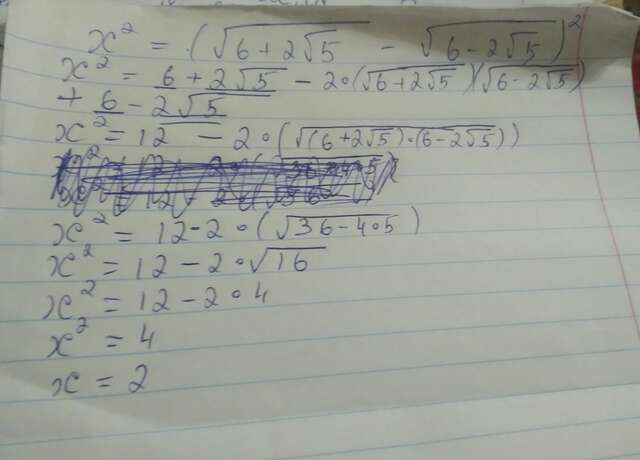 x² = (√(6+2√5) - √(6-2√5))²
x² = 6 + 2√5 - 2∘(√(6+2√5))(√(6-2√5))
+ 6 - 2√5
x² = 12 - 2∘(√((6+2√5)∘(6-2√5)))
x² = 12-2∘(√(36-4∘5))
x² = 12-2∘√16
x² = 12-2∘4
x² = 4
x = 2